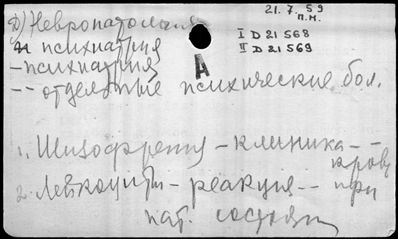 21.7.59
п.н.
Д) Невропатология
I D 21 568
и психиатрия
II D 21 569
– психиатрия
А
-- отдельные психические бол.
1. Шизофрения – клиника --
кровь
2. Лейкоциты – реакция -- при
пат. состоян